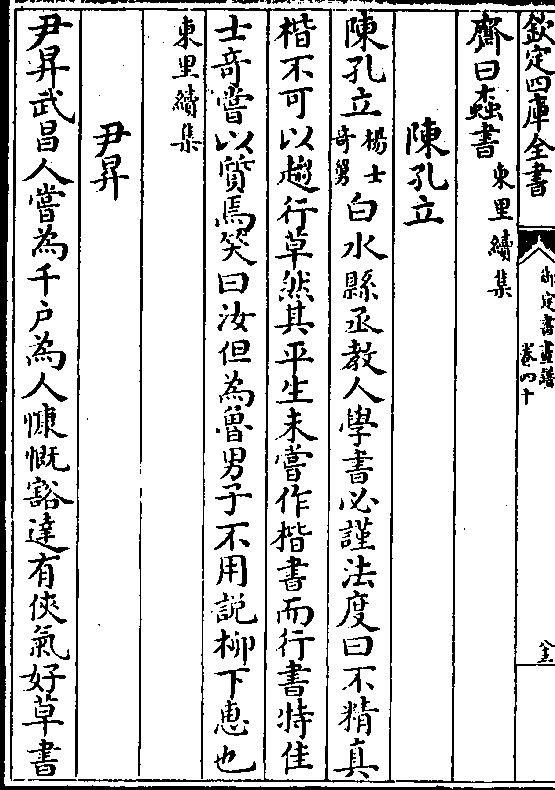 欽定四庫全書
御定書畫譜
卷四十
齋曰蛀書東里續集
陳孔立
陳孔立楊士奇舅白水縣丞教人學書必謹法度曰不精真
楷不可以趨行草然其平生未嘗作楷書而行書特佳
士奇嘗以質焉笑曰汝但為魯男子不用説柳下惠也
東里續集
尹昇
尹昇武昌人嘗為千户為人慷慨豁達有俠氣好草書